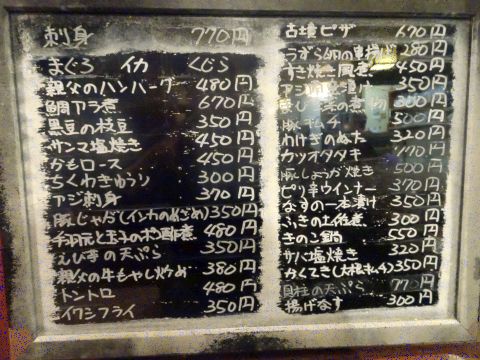 刺身 770円
まぐろ イカ くじら
親父のハンバーグ 480円
鯛アラ煮 670円
黒豆の枝豆 350円
サンマ塩焼き 450円
かもロース 450円
ちくわきゅうり 300円
アジ刺身 370円
豚じゃが(インカのめざめ) 350円
手羽元と玉子のポン酢煮 480円
えび芋の天ぷら 350円
親父の牛もやし炒め 380円
トントロ 480円
イワシフライ 350円
古墳ピザ 670円
うずら卵の 280円
すき焼き風煮 450円
アジ 350円
の煮物 300円
豚キムチ 500円
わけぎのぬた 320円
カツオタタキ 770円
豚しょうが焼き 500円
ピリ辛ウインナー 370円
なすの一本漬け 350円
ふきの土佐煮 300円
きのこ鍋 550円
サバ塩焼き 320円
かくてき(大根キムチ) 350円
貝柱の天ぷら 770円
揚げなす 300円